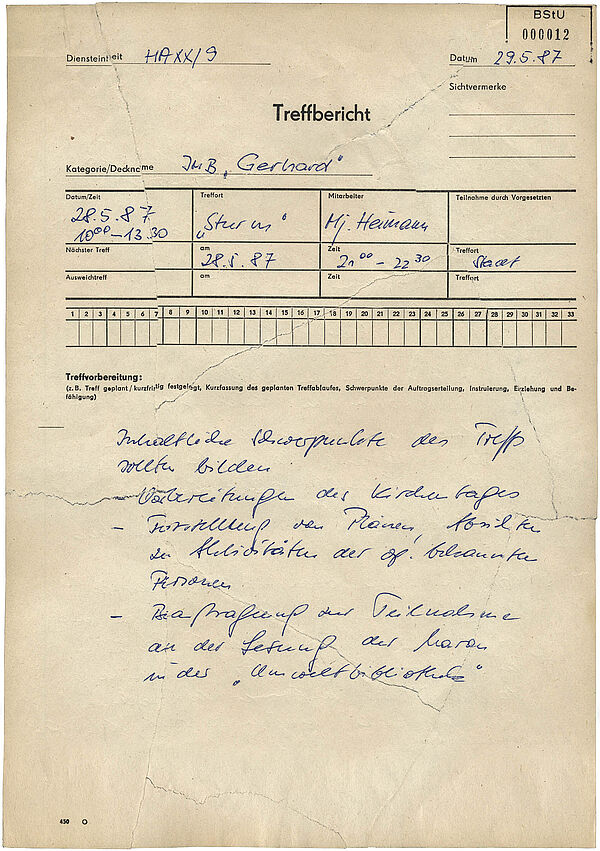 BStU
000012
Diensteinheit HA XX/9
Datum 29.5.87
Sichtvermerke
Treffbericht
Kategorie/Deckname IMB „Gerhard“
Datum/Zeit Treffort Mitarbeiter Teilnahme durch Vorgesetzten
28.5.87 „Sturm“ Mj. Heimann
10⁰⁰–13.30
Nächster Treff am Zeit Treffort
28.5.87 21⁰⁰ – 22³⁰ Stadt
Ausweichtreff am Zeit Treffort
1 2 3 4 5 6 7 8 9 10 11 12 13 14 15 16 17 18 19 20 21 22 23 24 25 26 27 28 29 30 31 32 33
Treffvorbereitung:
(z. B. Treff geplant/kurzfristig festgelegt, Kurzfassung des geplanten Treffablaufes, Schwerpunkte der Auftragserteilung, Instruierung, Erziehung und Be-
fähigung)
Inhaltliche Schwerpunkte des Treffs
sollten bilden
Vorbereitungen des Kirchentages
– Feststellung von Plänen, Absichten
zu Aktivitäten der op. bekannten
Personen.
– Beauftragung zur Teilnahme
an der Lesung der Maron
in der „Umweltbibliothek“
450